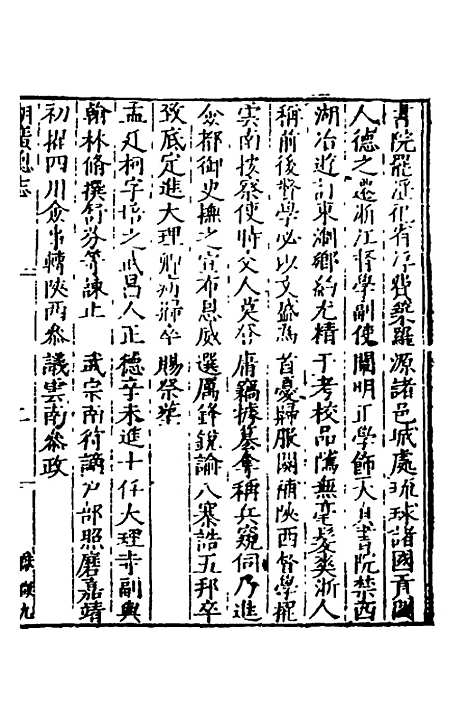 書院罷淫祀省浮費築羅源諸邑城處琉球諸國貢
人德之遷浙江督學副使闡明正學飾天真書院禁西
湖冶遊訂東湖鄉約尤精于考校品隲無毫髮爽浙人
稱前後督學必以文盛為首憂歸服闋補陝西督學擢
雲南按察使時交人莫登庸竊據篡奪稱兵窺伺乃進
僉都御史撫之宣布恩威選厲鋒銳諭八寨誥五邦卒
致底定進大理卿病歸卒賜祭葬
孟廷柯字之武昌人正德辛未進士仕大理寺副與
翰林修撰舒芬等諫止武宗南狩謫戶部照磨嘉靖
初擢四川僉事轉陝西參議雲南參政
湖廣總志